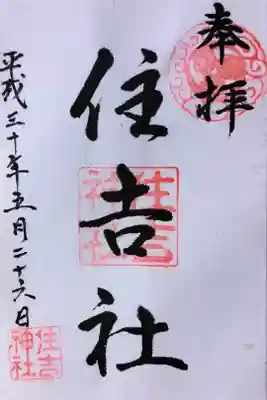 奉拝
住吉社
平成三十年五月二十六日
住吉
神社